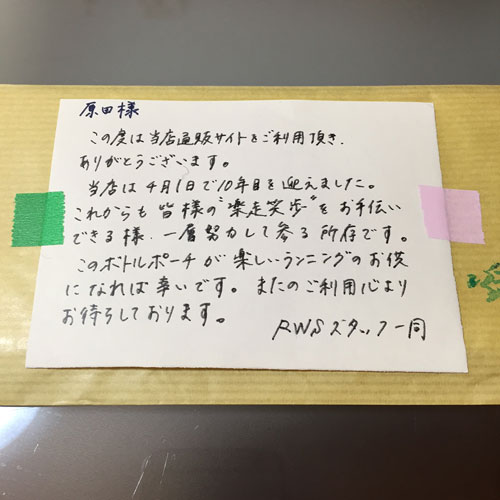 原田様
この度は当店通販サイトをご利用頂き、
ありがとうございます。
当店は4月1日で10年目を迎えました。
これからも皆様の"楽走笑歩"をお手伝い
できる様、一層努力して参る所存です。
このボトルポーチが楽しいランニングのお供
になれば幸いです。またのご利用心より
お待ちしております。
RWSスタッフ一同